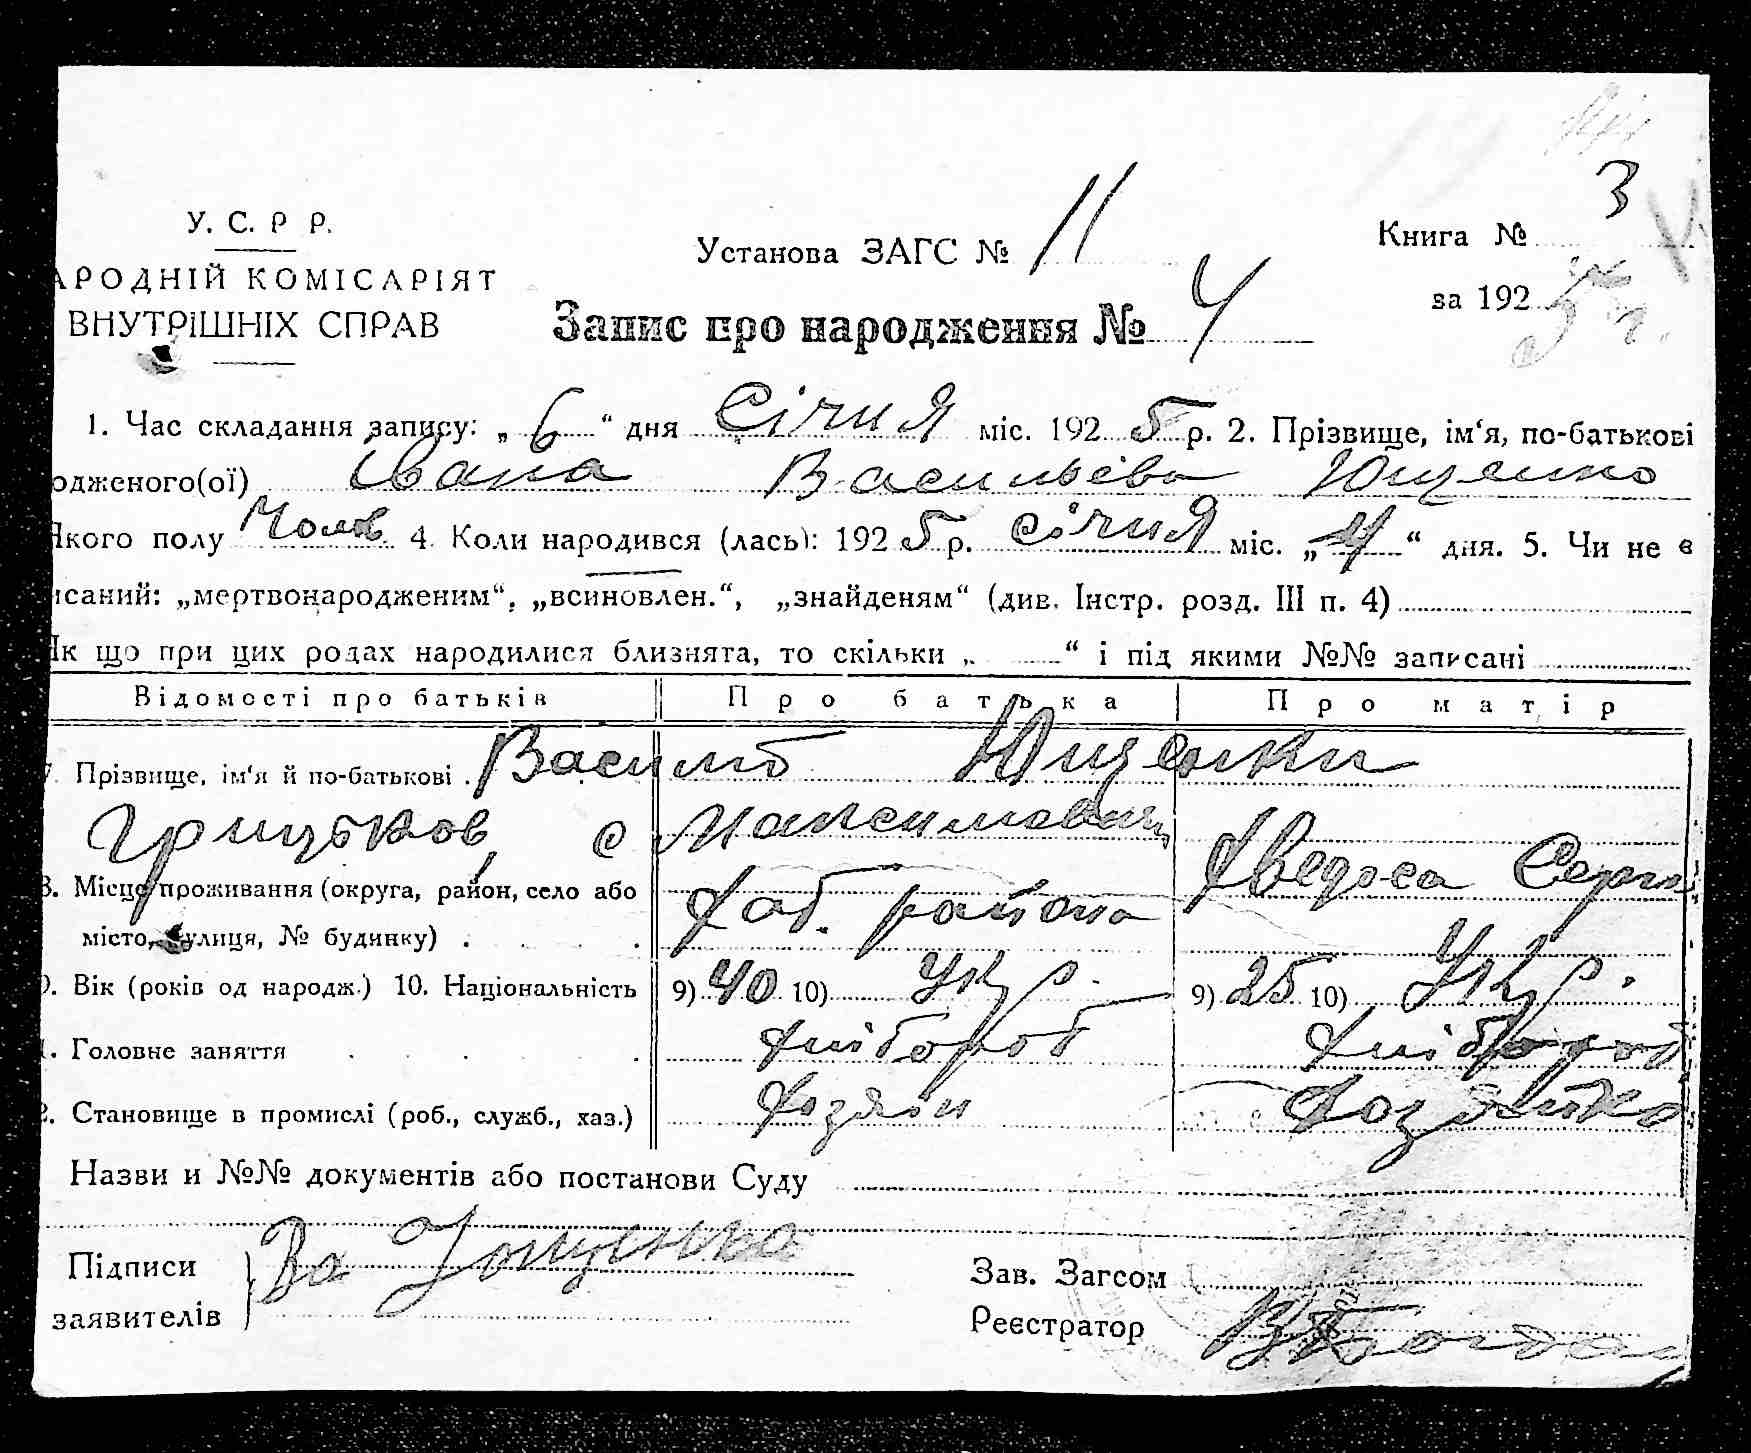 3
У. С. Р Р.
Установа ЗАГС № 11
Книга №
АРОДНІЙ КОМІСАРІЯТ
за 192 5 г.
ВНУТРІШНІХ СПРАВ
Запис про народження № 4
1. Час складання запису: „ 6 “ дня Січня міс. 192 5 р. 2. Прізвище, ім‘я, по-батькові
одженого(ої) Івана Васильева Ющенко
Якого полу Чолов 4. Коли народився (лась): 192 5 р. січня міс. „ 4 “ дня. 5. Чи не є
исаний: „мертвонародженим“, „всиновлен.“, „знайденям“ (див. Інстр. розд. III п. 4)
Як що при цих родах народилися близнята, то скільки „ “ і під якими №№ записані
Відомості про батьків Про батька Про матір
7. Прізвище, ім‘я й по-батькові . Василь Ющенки
Грицьков, с Максимович
Хведоса Серги
8. Місце проживання (округа, район, село або
місто, вулиця, № будинку) . . . . Хаб. района
9. Вік (років од народж.) 10. Національність 9) 40 10) Укр. 9) 25 10) Укр.
1. Головне заняття . . . . . Хлібороб Хлібороб
2. Становище в промислі (роб., служб., хаз.) Хозяїн Хозяйка
Назви и №№ документів або постанови Суду
Підписи За Ющенка
заявителів
Зав. Загсом
Реєстратор